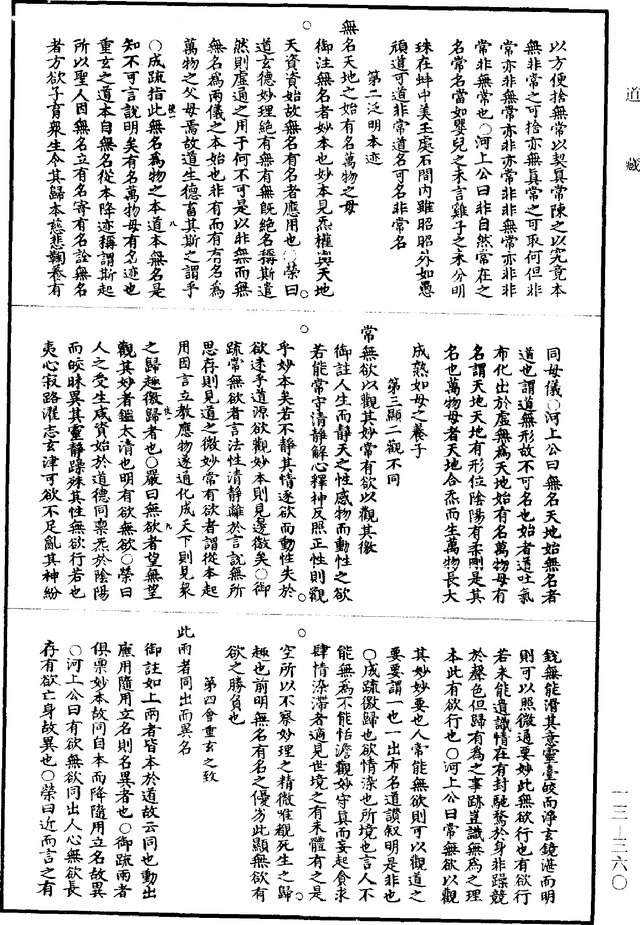 道藏
以方便捨無常以契真常陳之以究竟本
無非常之可捨亦無真常之可取何但非
常亦非無常亦非亦常亦非非無常亦非非
常非無常也○河上公曰非自然常在之
名常名當如嬰兒之未言雞子之未分明
珠在蚌中美玉處石間內雖昭昭外如愚
頑道可道非常道名可名非常名
第二泛明本迹
無名天地之始有名萬物之母
御注無名者妙本也妙本見炁權輿天地
天資資始故無名有名者應用也○榮曰
道玄德妙理絕有無有無既絕名稱斯遣
然則虛通之用于何不可是以非無而無
無名為兩儀之本始也非有而有有名為
萬物之父母焉故道生德畜其斯之謂乎
○成疏指此無名為物之本道本無名是
知不可言說明矣有名萬物母有名迹也
重玄之道本自無名從本降迹稱謂斯起
所以聖人因無名立有名寄有名詮無名
者方欲子育衆生令其歸本慈悲鞠養有
同母儀○河上公曰無名天地始無名者
道也謂道無形故不可名也始者道吐氣
布化出於虛無為天地始有名萬物母有
名謂天地天地有形位陰陽有柔剛是其
名也萬物母者天地合炁而生萬物長大
成熟如母之養子
第三顯二觀不同
常無欲以觀其妙常有欲以觀其徼
御註人生而靜天之性感物而動性之欲
若能常守清靜解心釋神反照正性則觀
乎妙本矣若不靜其情逐欲而動性失於
欲迷乎道源欲觀妙本則見邊徼矣○御
疏常無欲者言法性清靜離於言說無所
思存則見道之微妙常有欲者謂從本起
用因言立教應物遂通化成天下則見衆
之歸趣徼歸者也○嚴曰無欲者望無望
觀其妙者鑑太清也明有欲無欲○榮曰
人之受生咸資始於道德同稟炁於陰陽
而皎昧異其靈靜躁殊其性無欲行者也
夷心寂路濯志玄津可欲不足亂其神紛
銳無能滑其意靈臺皎而淨玄鏡湛而明
則可以照微通要妙此無欲行也有欲行
若未能遺識情在有封馳騖於身非躁競
於聲色但歸有為之事跡豈識無為之理
本此有欲行也○河上公曰常無欲以觀
其妙妙要也人常能無欲則可以觀道之
要要謂一也一出布名道讚叙明是非也
○成疏徼歸也欲情染也所境也言人不
能無為不能恬澹觀妙守真而妄起貪求
肆情染滯者適見世境之有未體有之是
空所以不察妙理之精微唯觀死生之歸
趣也前明無名有名之優劣此顯無欲有
欲之勝負也
第四會重玄之致
此兩者同出而異名
御註如上兩者皆本於道故云同也動出
應用隨用立名則名異者也○御疏兩者
俱稟妙本故同自本而降隨用立名故異
○河上公曰有欲無欲同出人心無欲長
存有欲亡身故異也○榮曰近而言之有
一三—三六〇